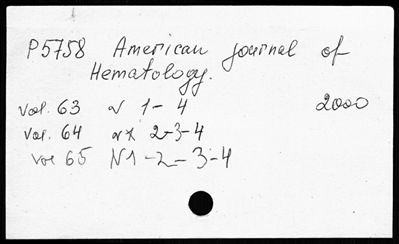 P5758 American journal of
Hematology.
vol. 63 N 1-4 2000
vol. 64 N 2-3-4
vol 65 N1-2-3-4